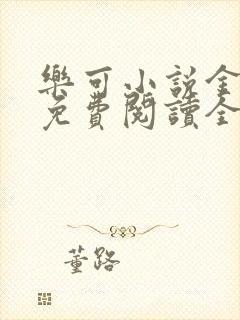 樂可小說全
免費閱讀全
董路